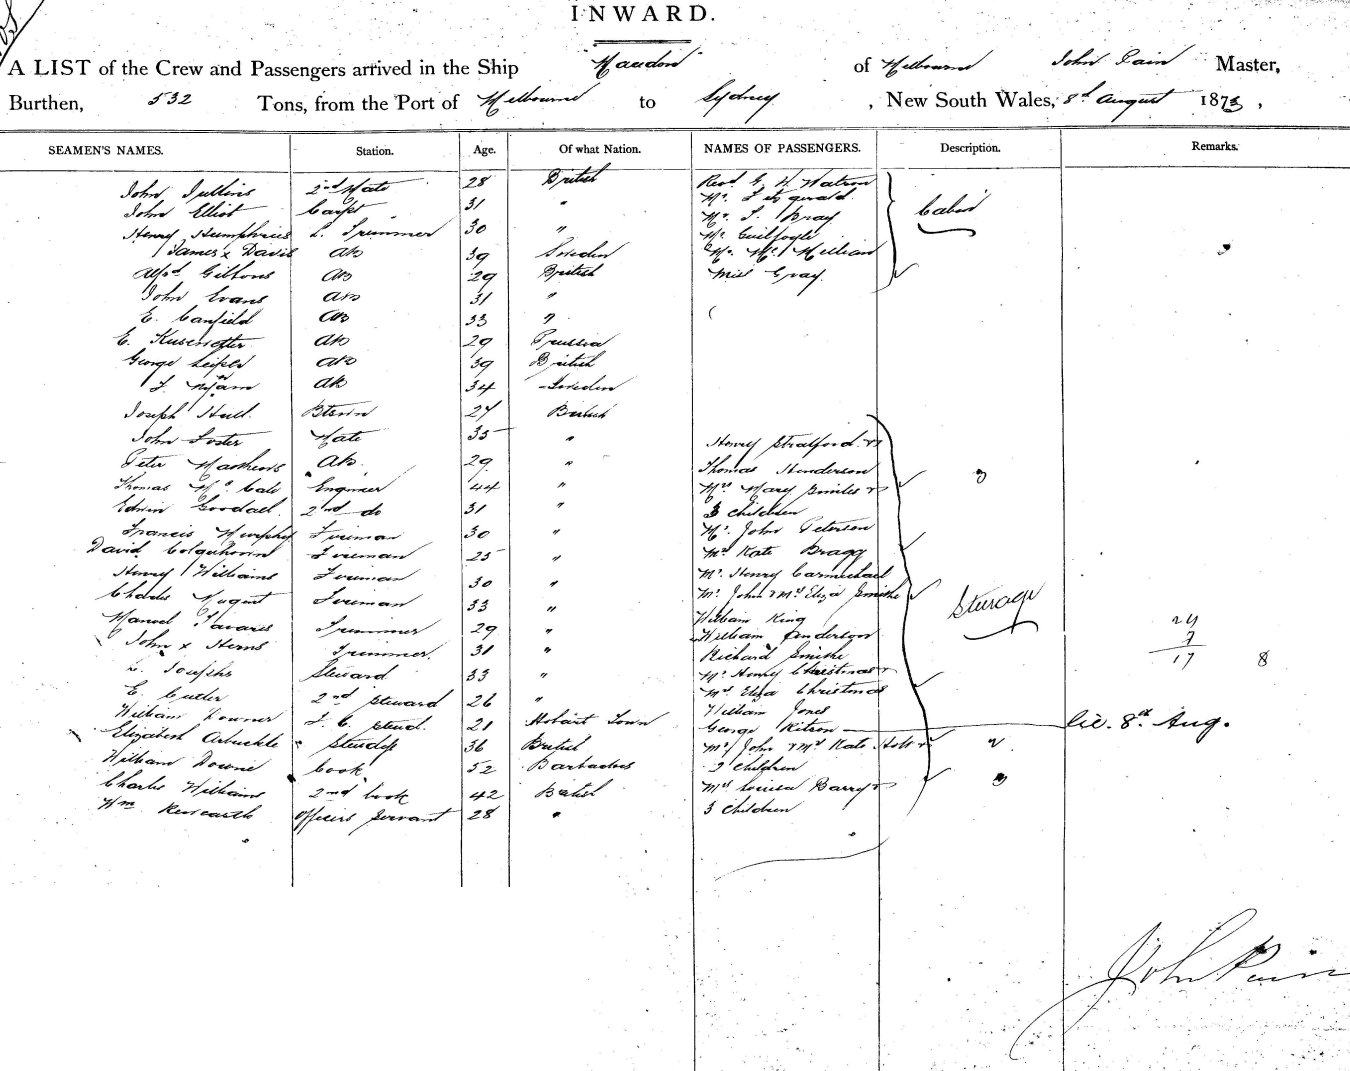 INWARD.
A LIST of the Crew and Passengers arrived in the Ship of Melbourne John Pain Master,
Burthen, 532 Tons, from the Port of Melbourne to Sydney, New South Wales, 8th August 1873,
SEAMEN'S NAMES. Station. Age. Of what Nation. NAMES OF PASSENGERS. Description. Remarks.
John 2nd Mate 28 British Revd G. W. Watson
John Elliot Carptr 31 " Mr. Fitzgerald
Henry Humphries L. Trimmer 30 " Mr. Bray Cabin
James x Davis AB 39 Sweden Mr. Guilfoyle
Alfd Gibbons AB 29 British Mr. McMillan
John Evans AB 31 " Miss Gray
E. Canfield AB 33 "
E. AB 29 Prussia
George AB 39 British
AB 34 Sweden
Joseph Hull 27 British
John Foster Mate 35 " Henry Stratford
Peter Matthews AB 29 " Thomas Henderson
Thomas McCale Engineer 44 " Mrs Mary
Edwin Goodael 2nd do 31 " 3 children
Francis Murphy Fireman 30 " Mr. John Peterson
David Colquhoun Fireman 25 " Mrs Kate Bragg
Henry Williams Fireman 30 " Mr. Henry Carmichael
Charles Nugent Fireman 33 " Mr. John & Mrs Eliza Smithe Sterage
Manuel Tavares Trimmer 29 " William King 24
John x Herns Trimmer 31 " William Anderson 7
Josephs Steward 33 " Richard Smithe 17 8
E. Cutler 2nd Steward 26 " Mr. Henry Christmas
William Downer F. C. Stewd. 21 Hobart Town Mrs Eliza Christmas
Elizabeth Arbuckle Stewdss 36 British William Jones
William Downie Cook 52 Barbadoes George Kitson lic. 8th Aug.
Charles Williams 2nd Cook 42 British Mr John & Mrs Kate Holt
Wm Officers Servant 28 " 2 children
Mrs Louisa Barry
3 children
John Pain